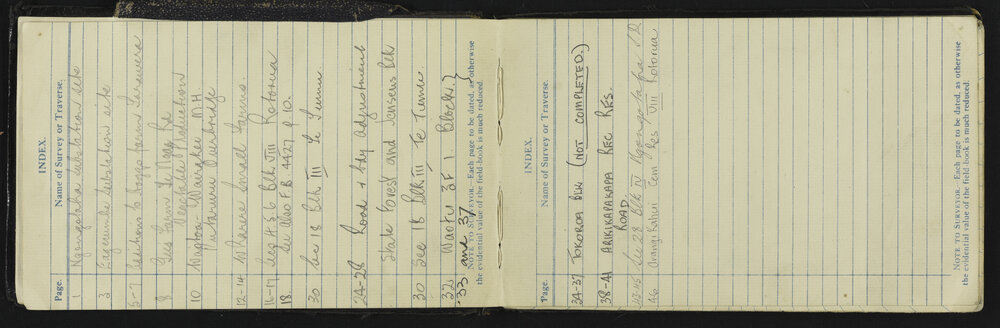 INDEX.
Page. Name of Survey or Traverse.
1 Ngongotaha Substation site
3 Edgecumbe Substation site
5-7 Sections Farm Tarawera
8 Farm Te Ngae Rd
10 Waipapa - Wairakei M.H.
12-14 Small Farms.
16-17 Secs 4 & 6 Blk VIII Rotorua
18 See also F.B. 4427 p 10.
30 Sec 18 Blk III Te Tumu
24-28 Road & Bdy Adjustment
State Forest and Jansens Blk
30 Sec 18 Blk III Te Tumu
32 Waotu 3F 1. Block.
33 and 37
NOTE TO SURVEYOR.—Each page to be dated, as otherwise
the evidential value of the field-book is much reduced.
INDEX.
Page. Name of Survey or Traverse.
34-37 TOKOROA BLK (NOT COMPLETED.)
38-41 ARIKIKAPAKAPA REC RES.
ROAD
43-45 Sec 28 Blk IV Ngongotaha S.D
46 Cem Res VIII Rotorua
NOTE TO SURVEYOR.—Each page to be dated, as otherwise
the evidential value of the field-book is much reduced.